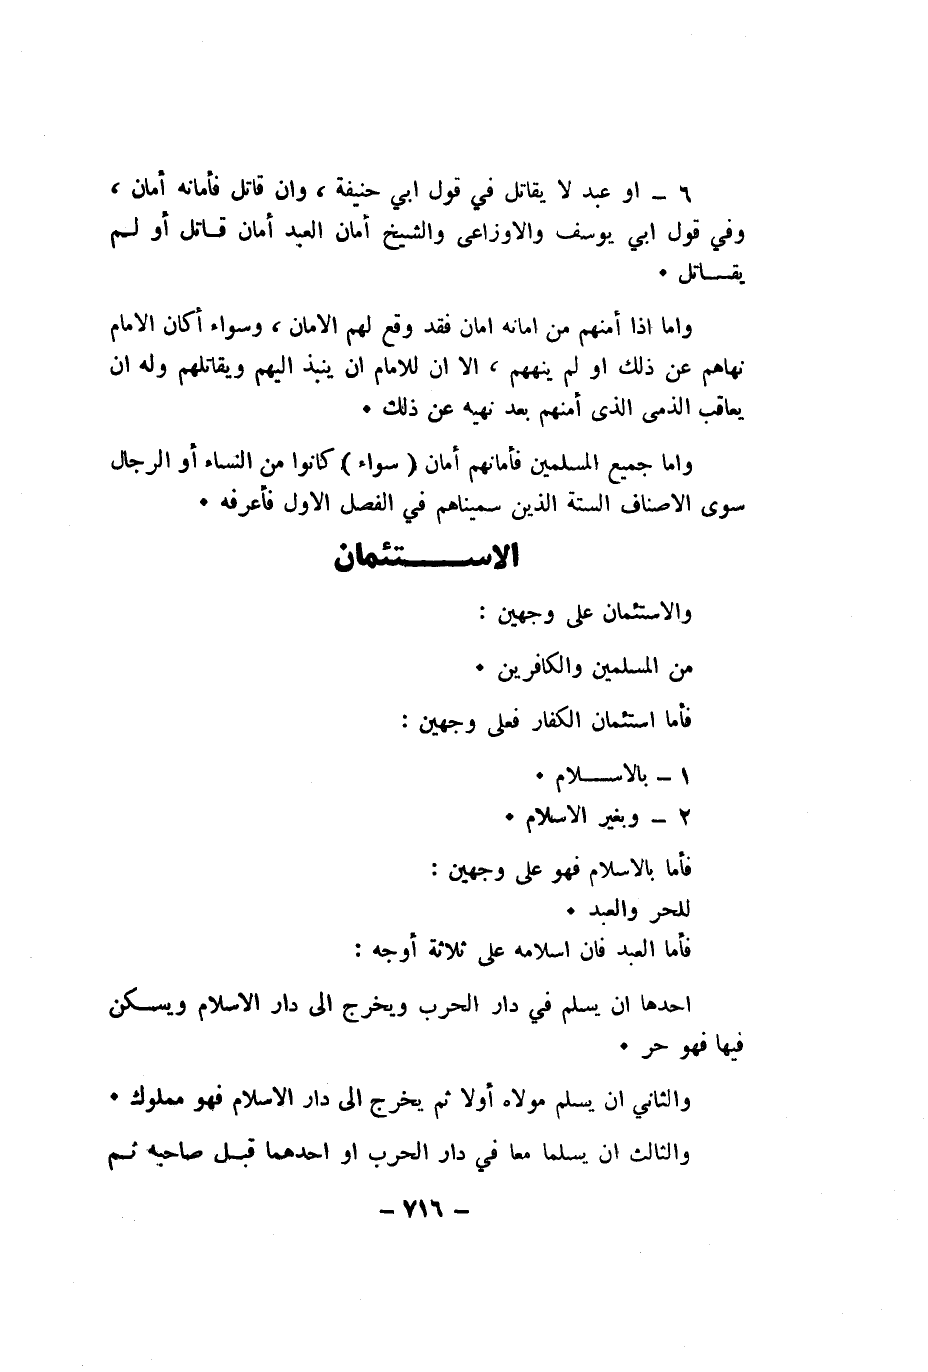 ٦ ـ او عبد لا يقاتل في قول ابي حنيفة ، وان قاتل فأمانه أمان ،
وفي قول ابي يوسف والاوزاعى والشيخ أمان العبد أمان قـاتل أو لـم
يقــاتل ٠
واما اذا أمنهم من امانه امان فقد وقع لهم الامان ، وسواء أكان الامام
نهاهم عن ذلك او لم ينههم ، الا ان للامام ان ينبذ اليهم ويقاتلهم وله ان
يعاقب الذمى الذى أمنهم بعد نهيه عن ذلك ٠
واما جميع المسلمين فأمانهم أمان ( سواء ) كانوا من النساء أو الرجال
سوى الاصناف الستة الذين سميناهم في الفصل الاول فأعرفه ٠
الاســـتئمان
والاستئمان على وجهين :
من المسلمين والكافرين ٠
فأما استئمان الكفار فعلى وجهين :
١ ـ بالاســلام ٠
٢ ـ وبغير الاسلام ٠
فأما بالاسلام فهو على وجهين :
للحر والعبد ٠
فأما العبد فان اسلامه على ثلاثة أوجه :
احدها ان يسلم في دار الحرب ويخرج الى دار الاسلام ويسـكن
فيها فهو حر ٠
والثاني ان يسلم مولاه أولا ثم يخرج الى دار الاسلام فهو مملوك ٠
والثالث ان يسلما معا في دار الحرب او احدهما قبـل صاحبه ثـم
ـ ٧١٦ ـ